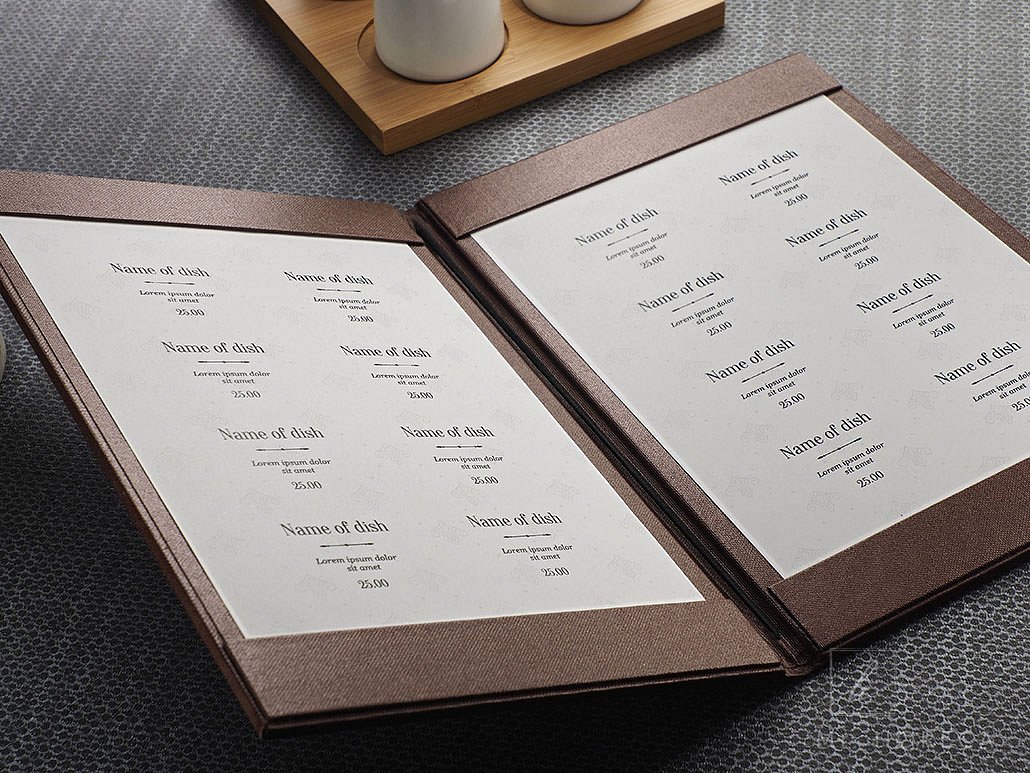 Name of dish
Lorem ipsum dolor
sit amet
25.00
Name of dish
Lorem ipsum dolor
sit amet
25.00
Name of dish
Lorem ipsum dolor
sit amet
25.00
Name of dish
Lorem ipsum dolor
sit amet
25.00
Name of dish
Lorem ipsum dolor
sit amet
25.00
Name of dish
Lorem ipsum dolor
sit amet
25.00
Name of dish
Lorem ipsum dolor
sit amet
25.00
Name of dish
Lorem ipsum dolor
sit amet
25.00
Name of dish
Lorem ipsum dolor
sit amet
25.00
Name of dish
Lorem ipsum dolor
sit amet
25.00
Name of dish
Lorem ipsum dolor
sit amet
25.00
Name of dish
Lorem ipsum dolor
sit amet
25.00
Name of dish
Lorem ipsum dolor
sit amet
25.00
Name of dish
Lorem ipsum dolor
sit amet
25.00
Name of dish
Lorem ipsum dolor
sit amet
25.00
Name of dish
Lorem ipsum
sit amet
25.0